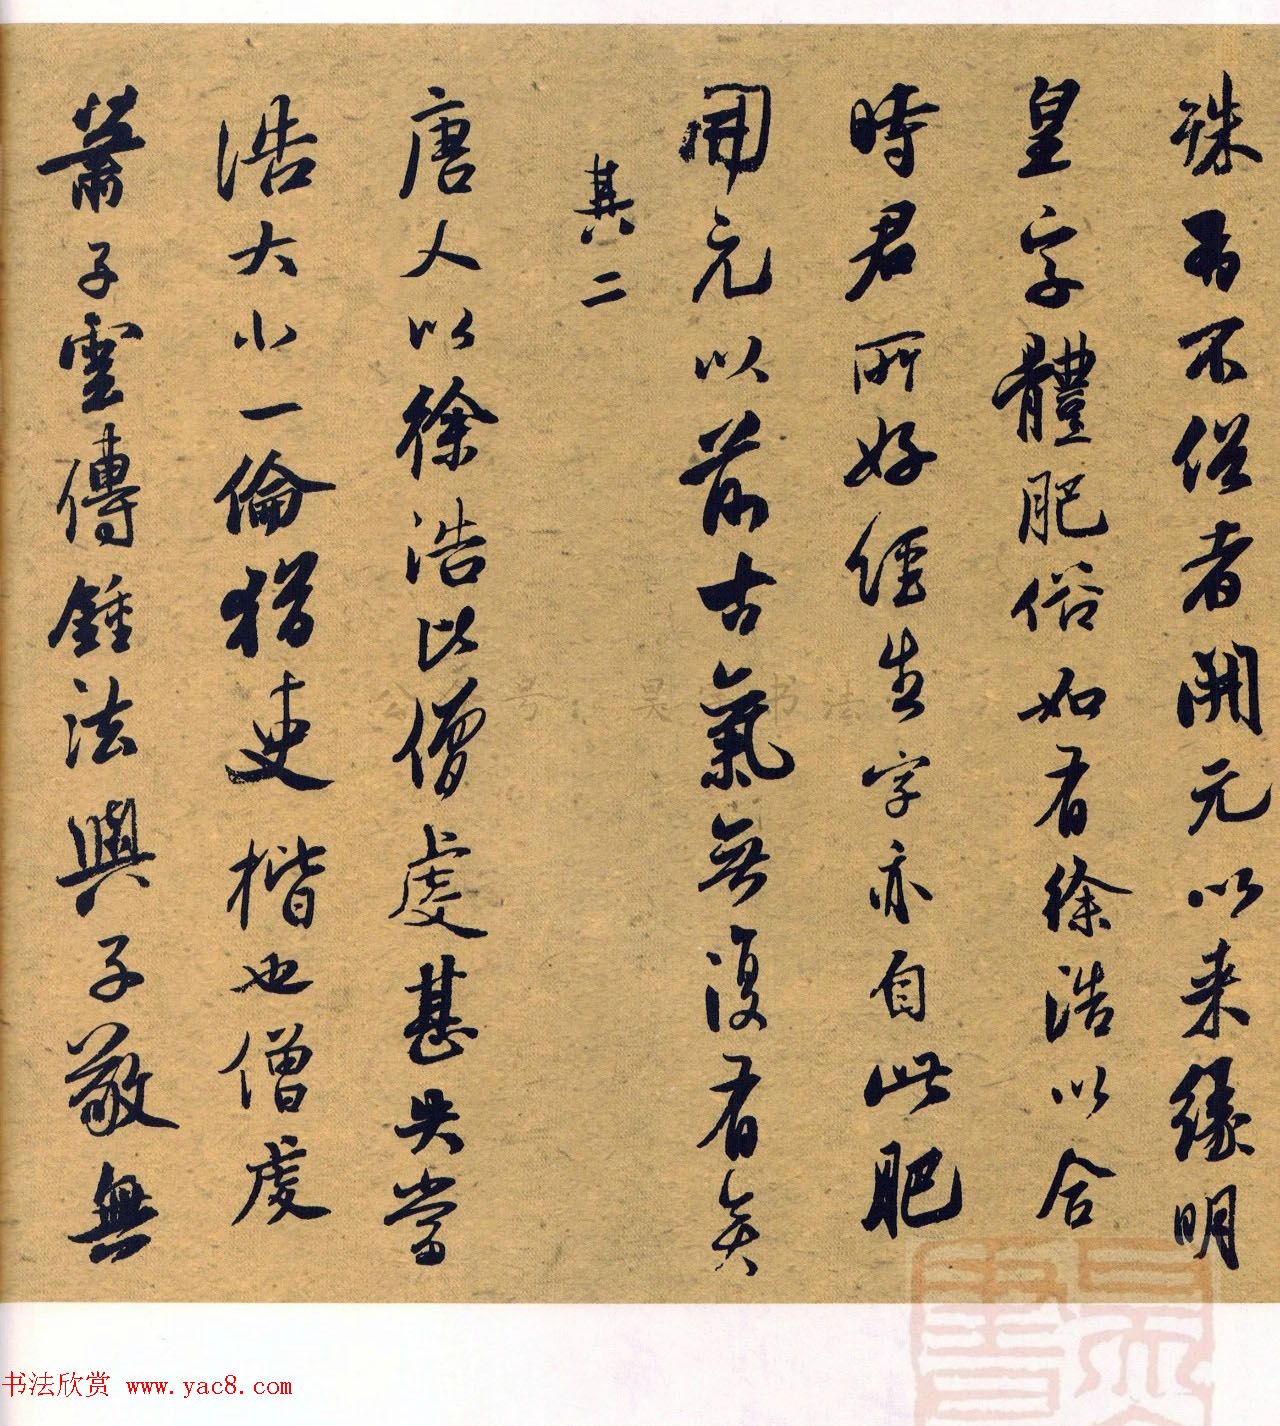 殊有不俗者開元以来緣明
皇字體肥俗始有徐浩以合
時君所好經生字亦自此肥
開元以前古氣無復有矣
其二
唐人以徐浩比僧虔甚失當
浩大小一倫猶吏楷也僧虔
蕭子雲傳鍾法與子敬無
书法欣赏 www.yac8.com